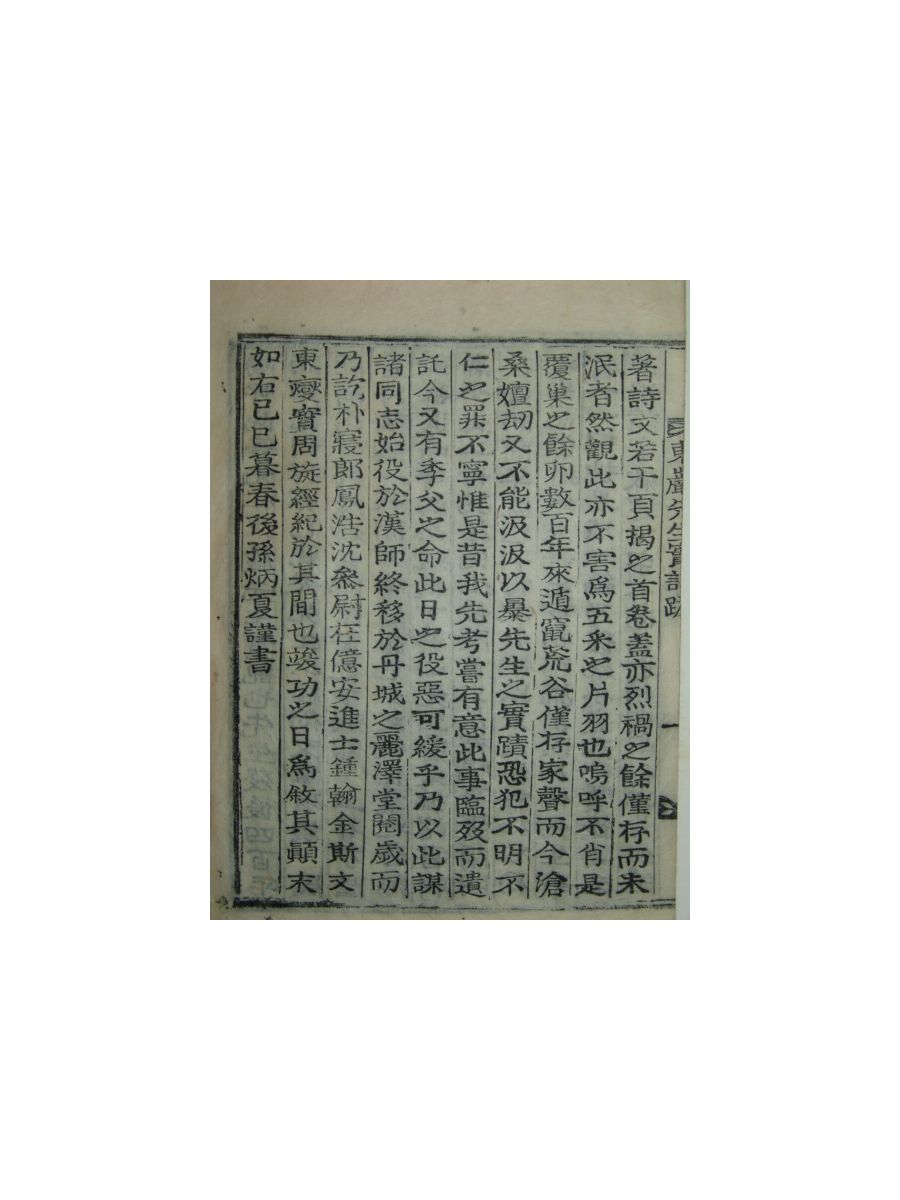 東巖先生實記跋
一
著詩文若干頁揭之首卷蓋亦烈禍之餘僅存而未
泯者然觀此亦不害爲五采之片羽也嗚呼不肖是
覆巢之餘卵數百年來遁竄荒谷僅存家聲而今滄
桑嬗劫又不能汲汲以暴先生之實蹟恐犯不明不
仁之罪不寧惟是昔我先考嘗有意此事臨歿而遺
託今又有季父之命此日之役惡可緩乎乃以此謀
諸同志始役於漢師終移於丹城之麗澤堂閱歲而
乃訖朴寢郎鳳浩沈參尉枉億安進士鍾翰金斯文
東燮實周旋經紀於其間也竣功之日爲敘其顚末
如右己巳暮春後孫炳夏謹書